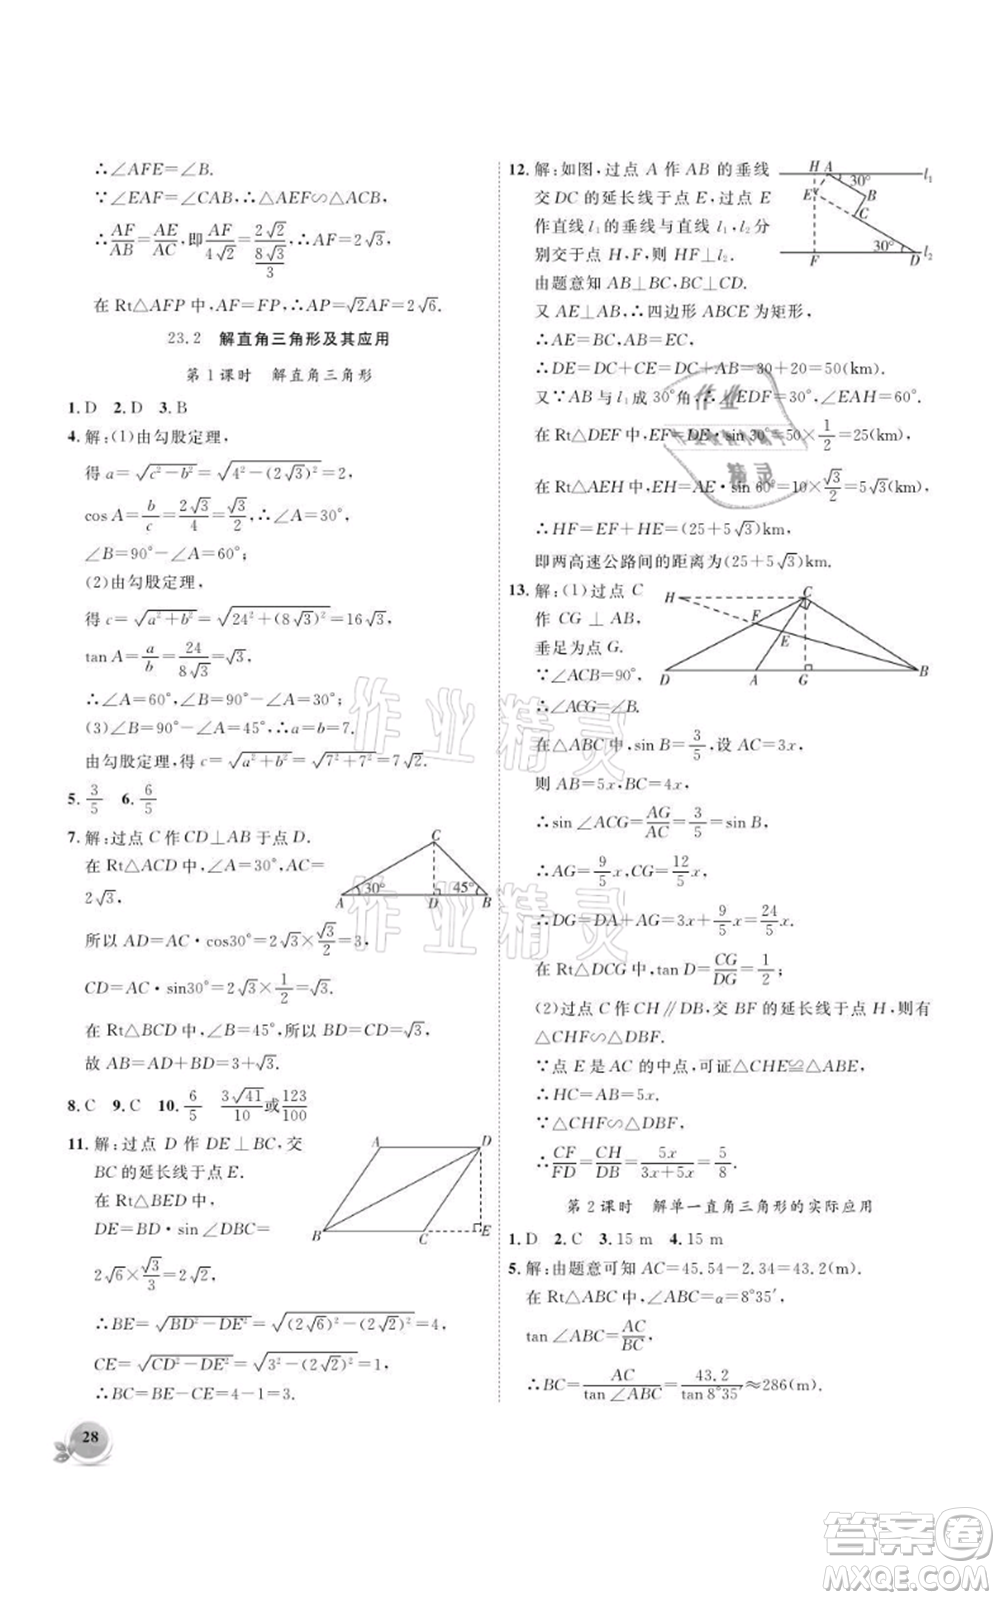 ∴∠AFE=∠B.
∵∠EAF=∠CAB,∴△AEF∽△ABC,
∴AF/AB=AE/AC,即AF/4√2=2√2/(8√3/3),∴AF=2√3,
在 Rt△AFP 中,AF=FP,∴AP=√2AF=2√6.
23.2 解直角三角形及其应用
第1课时 解直角三角形
1.D 2.D 3.B
4.解:(1)由勾股定理,
得 a=√(c²-b²)=√(4²-(2√3)²)=2,
cos A=b/c=2√3/4=√3/2,∴∠A=30°,
∠B=90°-∠A=60°;
(2)由勾股定理,
得 c=√(a²+b²)=√(24²+(8√3)²)=16√3,
tan A=a/b=24/8√3=√3,
∴∠A=60°,∠B=90°-∠A=30°;
(3)∠B=90°-∠A=45°,∴a=b=7.
由勾股定理,得 c=√(a²+b²)=√(7²+7²)=7√2.
5.3/5 6.6/5
7.解:过点 C 作 CD⊥AB 于点 D.
在 Rt△ACD 中,∠A=30°,AC=
2√3,
所以 AD=AC·cos30°=2√3×√3/2=3,
CD=AC·sin30°=2√3×1/2=√3.
在 Rt△BCD 中,∠B=45°,所以 BD=CD=√3,
故 AB=AD+BD=3+√3.
A 30° D 45° B C
8.C 9.C 10.6/5 3√41/10或123/100
11.解:过点 D 作 DE⊥BC,交
BC 的延长线于点 E.
在 Rt△BED 中,
DE=BD·sin∠DBC=
2√6×√3/3=2√2,
∴BE=√(BD²-DE²)=√((2√6)²-(2√2)²)=4,
CE=√(CD²-DE²)=√(3²-(2√2)²)=1,
∴BC=BE-CE=4-1=3.
A D B C E
28
12.解:如图,过点 A 作 AB 的垂线
交 DC 的延长线于点 E,过点 E
作直线 l₁ 的垂线与直线 l₁,l₂ 分
别交于点 H,F,则 HF⊥l₂.
由题意知 AB⊥BC,BC⊥CD,
又 AE⊥AB,∴四边形 ABCE 为矩形,
∴AE=BC,AB=EC.
∴DE=DC+CE=DC+AB=30+20=50(km).
又∵AB 与 l₁ 成 30°角,∴∠EDF=30°,∠EAH=60°.
在 Rt△DEF 中,EF=DE·sin 30°=50×1/2=25(km),
在 Rt△AEH 中,EH=AE·sin 60°=10×√3/2=5√3(km),
∴HF=EF+HE=(25+5√3)km,
即两高速公路间的距离为(25+5√3)km.
H A 30° l₁ E B C 30° F D l₂
13.解:(1)过点 C
作 CG⊥AB,
垂足为点 G.
∵∠ACB=90°,
∴∠ACG=∠B.
在△ABC 中,sin B=3/5,设 AC=3x,
则 AB=5x,BC=4x,
∴sin∠ACG=AG/AC=3/5=sin B,
∴AG=9/5x,CG=12/5x,
∴DG=DA+AG=3x+9/5x=24/5x,
在 Rt△DCG 中,tan D=CG/DG=1/2;
(2)过点 C 作 CH∥DB,交 BF 的延长线于点 H,则有
△CHF∽△DBF.
∵点 E 是 AC 的中点,可证△CHE≌△ABE,
∴HC=AB=5x.
∵△CHF∽△DBF,
∴CF/FD=CH/DB=5x/(3x+5x)=5/8.
H C F E D A G B
第2课时 解单一直角三角形的实际应用
1.D 2.C 3.15 m 4.15 m
5.解:由题意可知 AC=45.54-2.34=43.2(m).
在 Rt△ABC 中,∠ABC=α=8°35′,
tan∠ABC=AC/BC,
∴BC=AC/tan∠ABC=43.2/tan 8°35′≈286(m).
作业精灵
作业精灵
作业精灵
答案圈
MXQE.COM